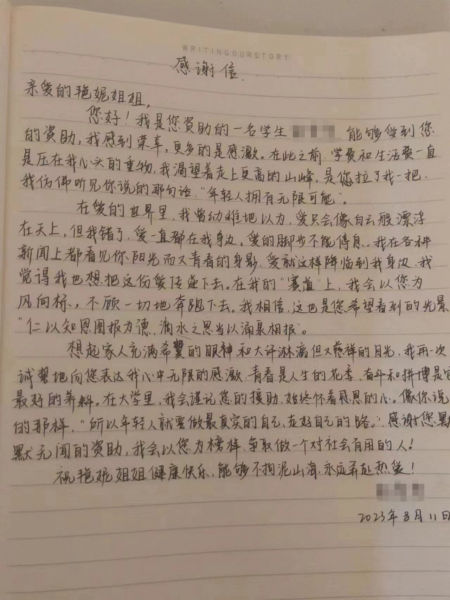 WRITINGOURSTORY
感谢信
亲爱的艳妮姐姐,
您好!我是您资助的一名学生 能够收到您
的资助,我感到荣幸,更多的是感激。在此之前,学费和生活费一直
是压在我心头的重物,我渴望着走上更高的山峰,是您拉了我一把,
我仿佛听见你说的那句话,"年轻人拥有无限可能"。
在爱的世界里,我曾幼难地以为,爱只会像白云般漂浮
在天上,但我错了,爱一直都在我身边,爱的脚步不能停息。我在各种
新闻上都看见你阳光而又青春的身影,爱就这样降临到我身边,我
觉得我也想把这份爱传递下去,在我的"赛道"上,我会以您为
风向标,不顾一切地奔跑下去。我相信,这也是您希望看到的光景
"仁以知恩图报为德,滴水之恩当以涌泉相报"。
想起家人充满希冀的眼神和大汗淋漓但又慈祥的目光,我再一次
诚挚地向您表达我心中无限的感激,青春是人生的花季,奋斗和拼搏是它
最好的养料,在大学里,我会谨记您的援助,始终怀着感恩的心,像你说
的那样,"所以年轻人就要做最真实的自己,走好自己的路。"感谢您默
默无闻的资助,我会以您为榜样,争取做一个对社会有用的人!
祝艳妮姐姐健康快乐,能够不拘泥山海,永远奔赴热爱!
2023年8月11日